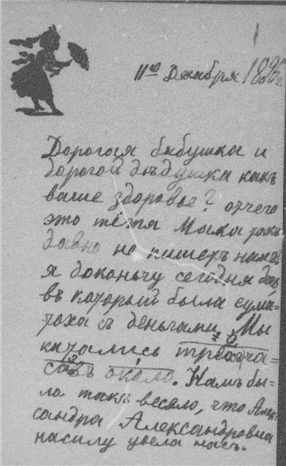 11го Декабря 189
Дорогая бабушка и
дорогой дѣдушка какъ
ваше здоровье? отчего
это тётя Маша такъ
давно не пишетъ намъ
я докончу сегодня
въ который была сума-
тоха съ деньгами. Мы
катались
около. Намъ бы-
ло такъ весело, что Алек-
сандра Александровна
насилу увела насъ.